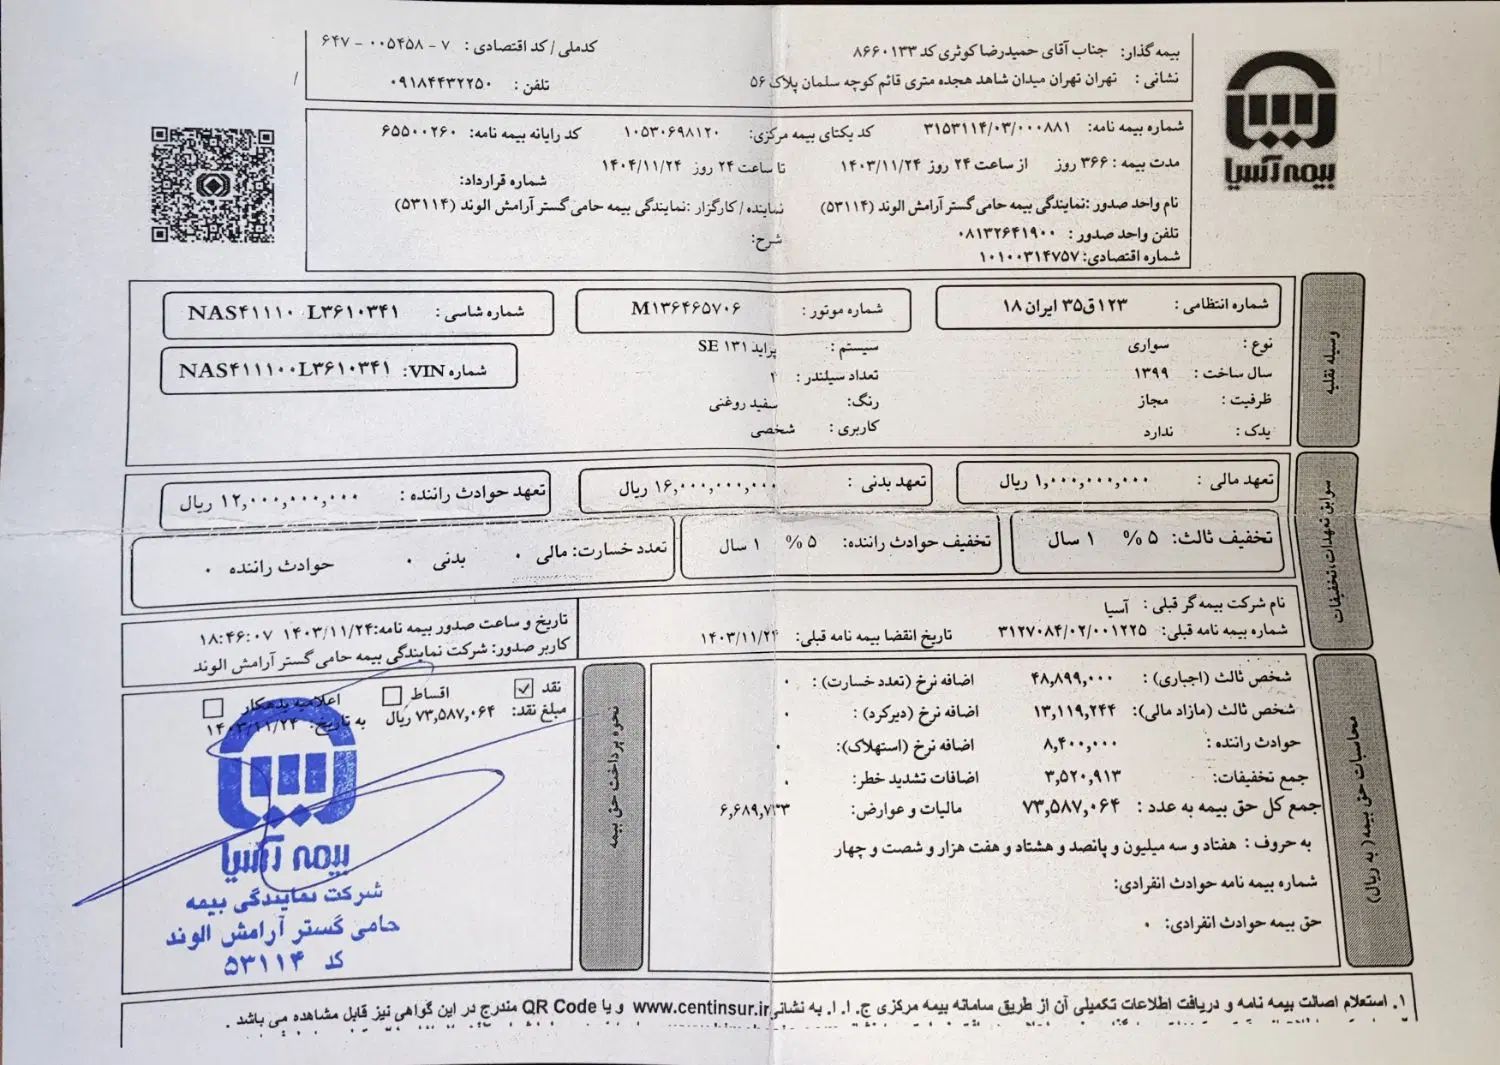 بیمه آسیا
بیمه گذار: جناب آقای حمیدرضا کوثری کد ۸۶۶۰۱۳۳ کدملی / کد اقتصادی : ۷ - ۰۰۵۴۵۸ - ۶۴۷
نشانی : تهران تهران میدان شاهد هجده متری قائم کوچه سلمان پلاک ۵۶ تلفن : ۰۹۱۸۴۴۳۲۲۵۰
شماره بیمه نامه: ۳۱۵۳۱۱۴/۰۳/۰۰۰۸۸۱ کد یکتای بیمه مرکزی: ۱۰۵۳۰۶۹۸۱۲۰ کد رایانه بیمه نامه: ۶۵۵۰۰۲۶۰
مدت بیمه : ۳۶۶ روز از ساعت ۲۴ روز ۱۴۰۳/۱۱/۲۴ تا ساعت ۲۴ روز ۱۴۰۴/۱۱/۲۴
شماره قرارداد:
نام واحد صدور :نمایندگی بیمه حامی گستر آرامش الوند (۵۳۱۱۴) نماینده / کارگزار :نمایندگی بیمه حامی گستر آرامش الوند (۵۳۱۱۴)
تلفن واحد صدور : ۰۸۱۳۲۶۴۱۹۰۰ شرح:
شماره اقتصادی: ۱۰۱۰۰۳۱۴۷۵۷
وسیله نقلیه
شماره انتظامی : ۱۲۳ق۳۵ ایران ۱۸ شماره موتور : M۱۳۶۴۶۵۷۰۶ شماره شاسی : NAS۴۱۱۱۰ L۳۶۱۰۳۴۱
نوع : سواری سیستم : پراید ۱۳۱ SE شماره VIN: NAS۴۱۱۱۰۰L۳۶۱۰۳۴۱
سال ساخت : ۱۳۹۹ تعداد سیلندر : ۴
ظرفیت : مجاز رنگ: سفید روغنی
یدک : ندارد کاربری : شخصی
سوابق تعهدات،تخفیفات
تعهد مالی : ۱,۰۰۰,۰۰۰,۰۰۰ ریال تعهد بدنی : ۱۶,۰۰۰,۰۰۰,۰۰۰ ریال تعهد حوادث راننده : ۱۲,۰۰۰,۰۰۰,۰۰۰ ریال
تخفیف ثالث: ۵ % ۱ سال تخفیف حوادث راننده: ۵ % ۱ سال تعدد خسارت: مالی ۰ بدنی ۰ حوادث راننده ۰
نام شرکت بیمه گر قبلی : آسیا
شماره بیمه نامه قبلی: ۳۱۲۷۰۸۴/۰۲/۰۰۱۲۲۵ تاریخ انقضا بیمه نامه قبلی: ۱۴۰۳/۱۱/۲۴
تاریخ و ساعت صدور بیمه نامه:۱۴۰۳/۱۱/۲۴ ۱۸:۴۶:۰۷
کاربر صدور: شرکت نمایندگی بیمه حامی گستر آرامش الوند
محاسبات حق بیمه( به ریال)
شخص ثالث (اجباری) : ۴۸,۸۹۹,۰۰۰ اضافه نرخ (تعدد خسارت) : ۰
شخص ثالث (مازاد مالی): ۱۳,۱۱۹,۲۴۴ اضافه نرخ (دیرکرد) : ۰
حوادث راننده : ۸,۴۰۰,۰۰۰ اضافه نرخ (استهلاک): ۰
جمع تخفیفات: ۳,۵۲۰,۹۱۳ اضافات تشدید خطر: ۰
جمع کل حق بیمه به عدد : ۷۳,۵۸۷,۰۶۴ مالیات و عوارض: ۶,۶۸۹,۷۳۳
به حروف : هفتاد و سه میلیون و پانصد و هشتاد و هفت هزار و شصت و چهار
شماره بیمه نامه حوادث انفرادی:
حق بیمه حوادث انفرادی: ۰
نحوه پرداخت حق بیمه
نقد اقساط اعلامیه بدهکار
مبلغ نقد: ۷۳,۵۸۷,۰۶۴ ریال به تاریخ: ۱۴۰۳/۱۱/۲۴
بیمه آسیا
شرکت نمایندگی بیمه
حامی گستر آرامش الوند
کد ۵۳۱۱۴
۱. استعلام اصالت بیمه نامه و دریافت اطلاعات تکمیلی آن از طریق سامانه بیمه مرکزی ج. ا. ا. به نشانی www.centinsur.ir و یا QR Code مندرج در این گواهی نیز قابل مشاهده می باشد .